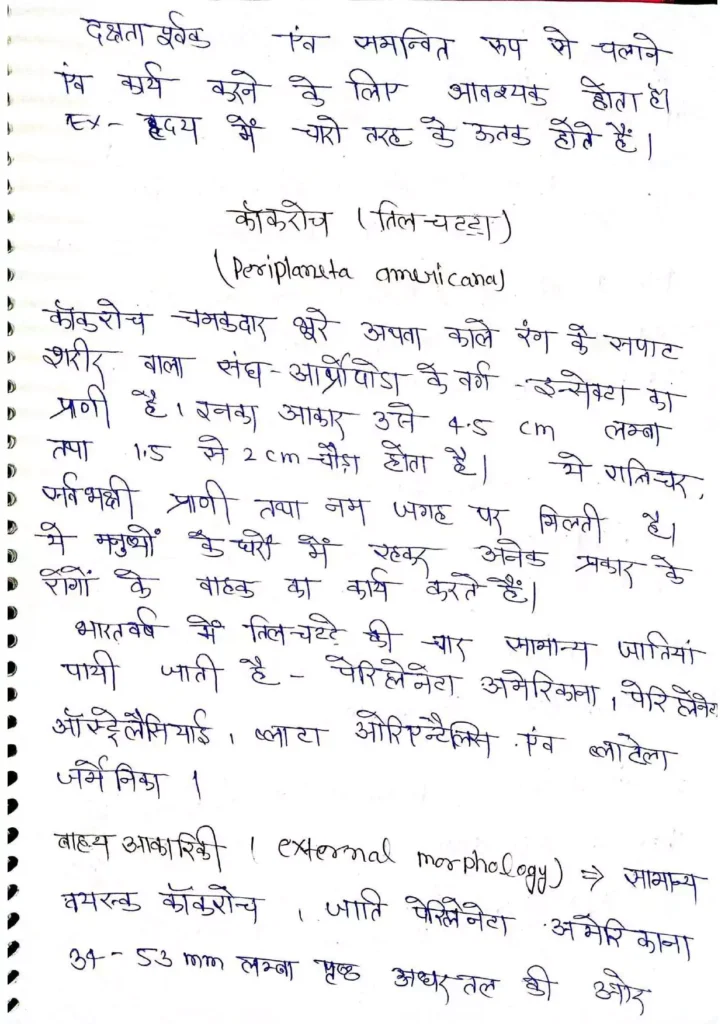 दक्षता पूर्वक एंव समन्वित रूप से चलाने
एंव कार्य करने के लिए आवश्यक होता है।
Ex - हृदय में चारो तरह के ऊतक होते हैं।
कॉकरोच (तिल-चटटा)
(Periplaneta americana)
कॉकरोच चमकदार भूरे अथवा काले रंग के सपाट
शरीर वाला संघ - आर्थ्रोपोडा के वर्ग - इन्सेक्टा का
प्राणी है। इनका आकार 3 से 4.5 cm लम्बा
तथा 1.5 से 2 cm चौड़ा होता है। ये रात्रिचर,
सर्वभक्षी प्राणी तथा नम जगह पर मिलती है।
ये मनुष्यों के घरों में रहकर अनेक प्रकार के
रोगों के वाहक का कार्य करते हैं।
भारतवर्ष में तिल-चटटे की चार सामान्य जातियां
पायी जाती है - पेरिप्लेनेटा अमेरिकाना, पेरिप्लेनेटा
ऑस्ट्रेलैसियाई, ब्लाटा ओरिएन्टैलिस एंव ब्लाटेला
जर्मेनिका।
बाह्य आकारिकी (external morphology) ⇒ सामान्य
वयस्क कॉकरोच, जाति पेरिप्लेनेटा अमेरिकाना
34 - 53 mm लम्बा पृष्ठ अधर तल की ओर